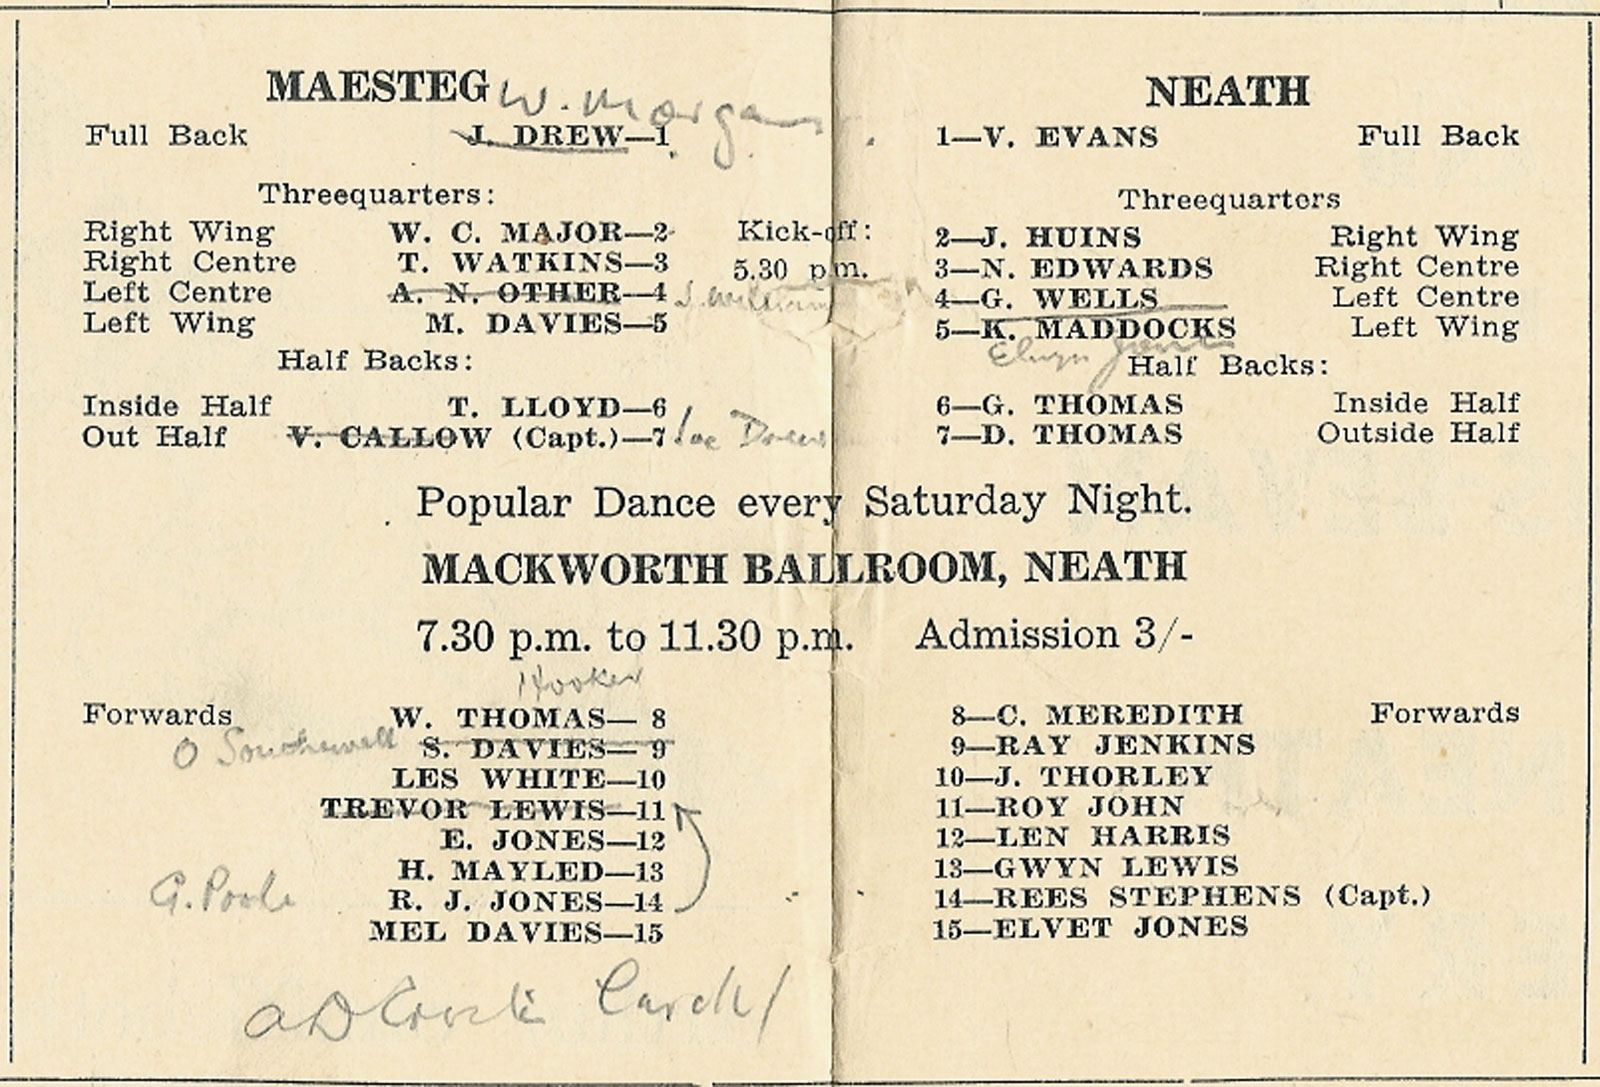 MAESTEG W. Morgan
Full Back J. DREW—1
Threequarters:
Right Wing W. C. MAJOR—2
Right Centre T. WATKINS—3
Left Centre A. N. OTHER—4
Left Wing M. DAVIES—5
Half Backs:
Inside Half T. LLOYD—6
Out Half V. CALLOW (Capt.)—7 Joe Drew
Kick-off:
5.30 p.m.
NEATH
1—V. EVANS Full Back
Threequarters
2—J. HUINS Right Wing
3—N. EDWARDS Right Centre
4—G. WELLS Left Centre
5—K. MADDOCKS Left Wing
Elwyn Jones
Half Backs:
6—G. THOMAS Inside Half
7—D. THOMAS Outside Half
Popular Dance every Saturday Night.
MACKWORTH BALLROOM, NEATH
7.30 p.m. to 11.30 p.m. Admission 3/-
Hooker
Forwards W. THOMAS— 8
O Southewell S. DAVIES— 9
LES WHITE—10
TREVOR LEWIS—11
E. JONES—12
H. MAYLED—13
G. Poole R. J. JONES—14
MEL DAVIES—15
8—C. MEREDITH Forwards
9—RAY JENKINS
10—J. THORLEY
11—ROY JOHN
12—LEN HARRIS
13—GWYN LEWIS
14—REES STEPHENS (Capt.)
15—ELVET JONES